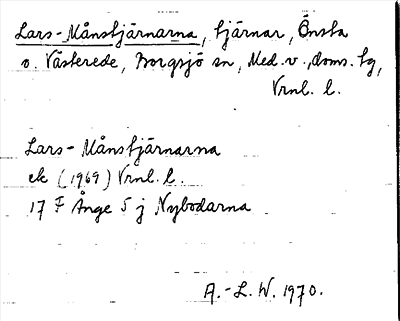 Lars-Månstjärnarna, tjärnar, Önsta
o. Västerede, Borgsjö sn, Med. v., doms. tg,
Vrnl. l.
Lars-Månstjärnarna
ek (1969) Vrnl. l.
17 F Ånge 5 j Nybodarna
A.-L. W. 1970.